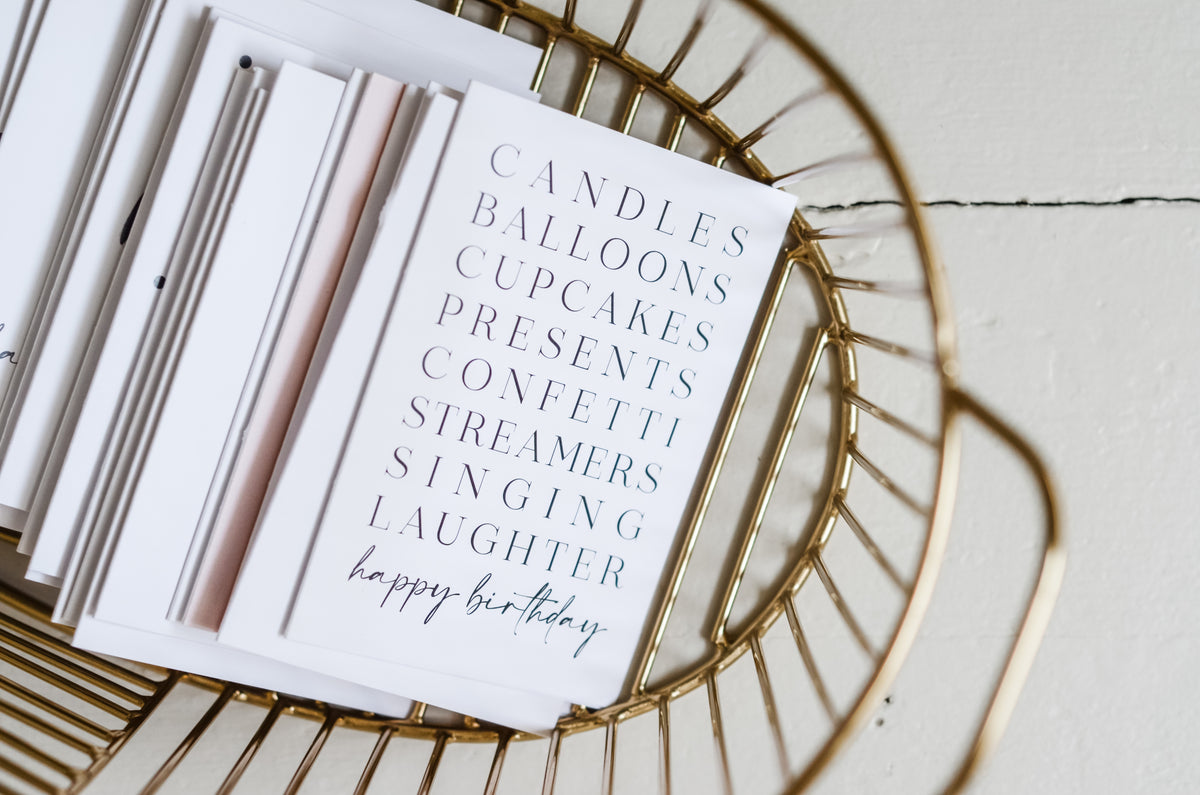 CANDLES
BALLOONS
CUPCAKES
PRESENTS
CONFETTI
STREAMERS
SINGING
LAUGHTER
happy birthday